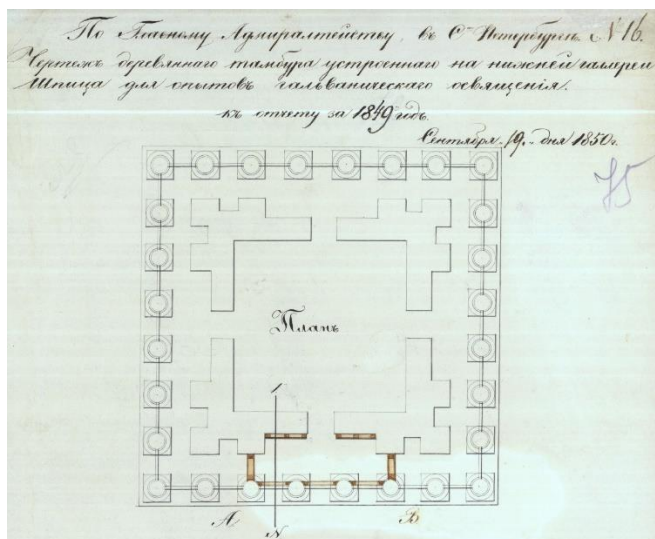 По Главному Адмиралтейству, въ С. Петербургѣ. №16.
Чертежъ деревяннаго тамбура устроеннаго на нижней галлереи
Шпица для опытовъ гальваническаго освященія.
къ отчету за 1849 годъ.
Сентября 19. дня 1850 г.
75
Планъ
А В
N